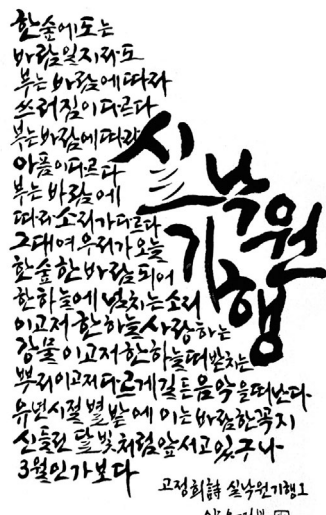 한 숲에 도는
바람일지라도
부는 바람에 따라
쓰러짐이 다르다
부는 바람에 따라
아픔이 다르다
부는 바람에
따라 소리가 다르다
그대여 우리가 오늘
한 숲 한 바람 되어
한 하늘에 넘치는 소리
이고저 한 하늘 사랑하는
강물이고저 한 하늘 떠받치는
뿌리이고저 다르게 길든 음악을 떠받다
유년시절 별밭에 이는 바람 한 꼭지
신들린 달빛처럼 앞서고 있구나
3월인가보다
실낙원
기행
고정희 詩 실낙원기행 1